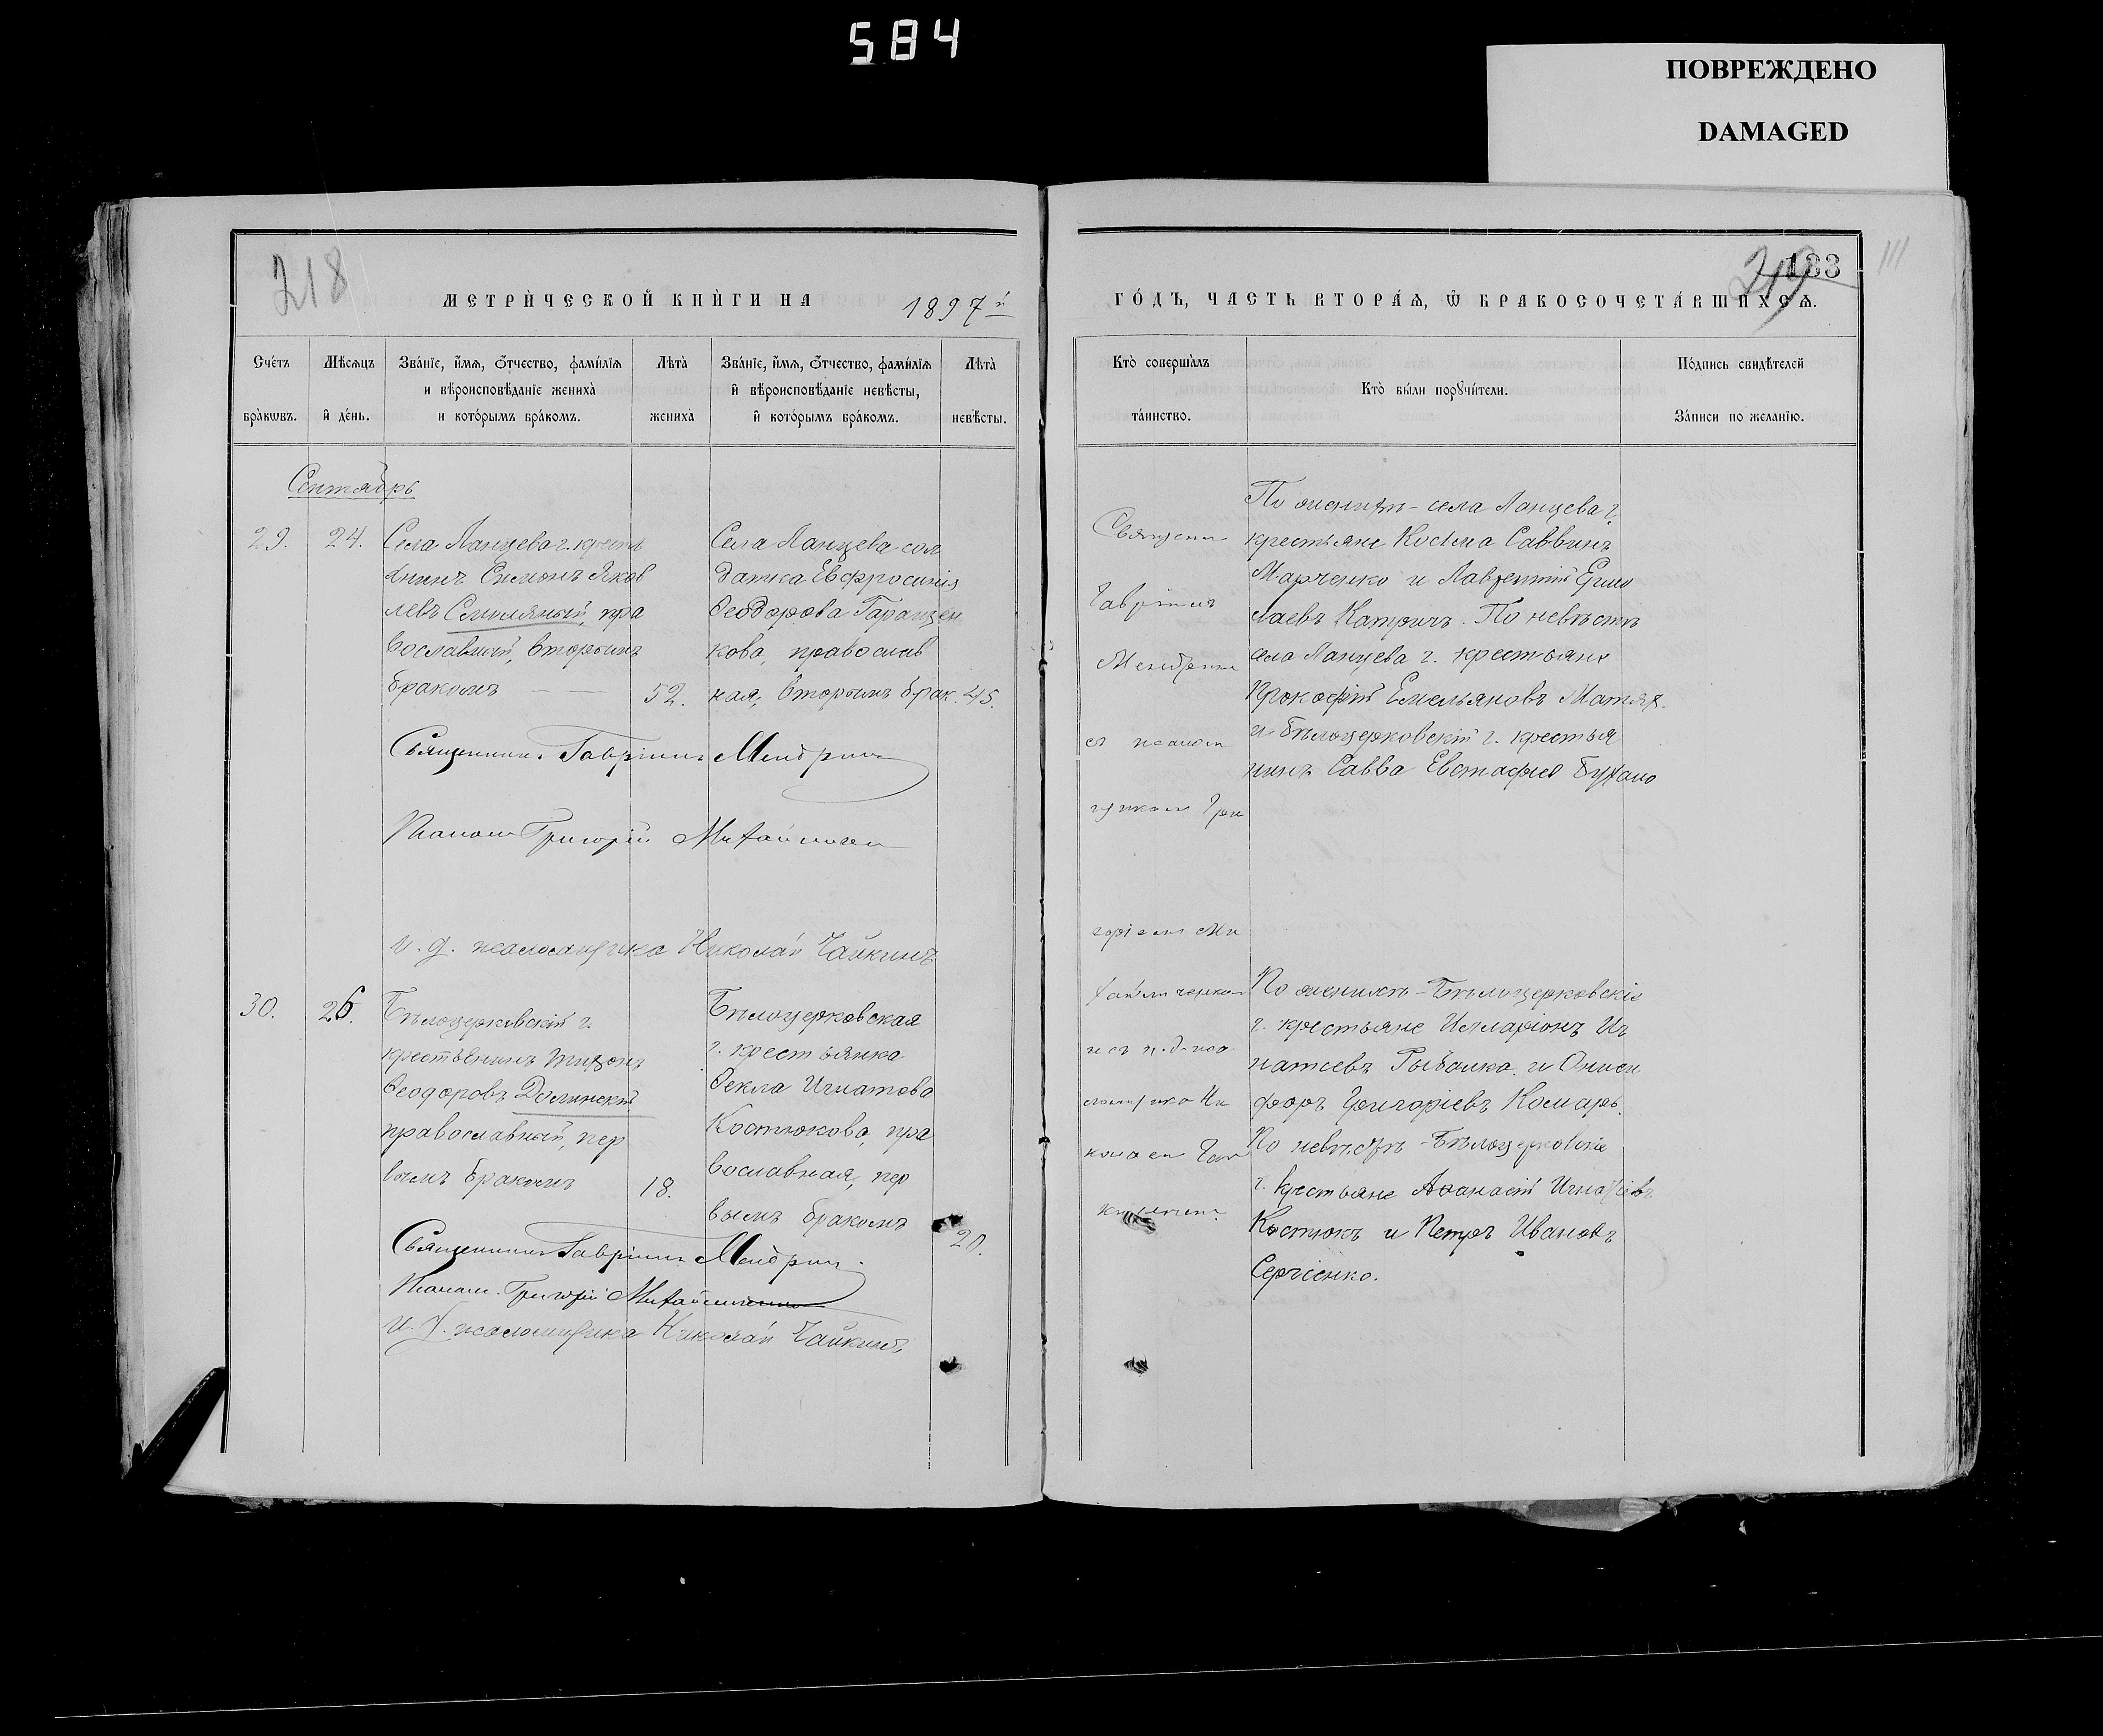 584
ПОВРЕЖДЕНО
DAMAGED
218
МЕТРИ́ЧЕСКОЙ КНИ́ГИ НА 1897й
Сче́тъ бра́кѡвъ.
Мѣ́сѧцъ и҆ де́нь.
Зва́нїе, и҆́мѧ, ѻ҆́тчество, фами́лїѧ
и вѣроисповѣ́данїе жениха̀
и кото́рымъ бра́комъ.
Лѣта̀ жениха̀
Зва́нїе, и҆́мѧ, ѻ҆́тчество, фами́лїѧ
и҆ вѣроисповѣ́данїе невѣ́сты,
и҆ кото́рымъ бра́комъ.
Лѣта̀ невѣ́сты.
Сентябрь
29.
24.
Села Ланцева г. кресть
янинъ Симонъ Яков
левъ Смоляный, пра
вославный, вторымъ
бракомъ
52.
Села Ланцева сол
датка Евфросинія
Ѳеодорова Таращен
кова, православ
ная, вторымъ брак.
45.
Священникъ Гавріилъ Мендринъ
Псалом. Григорій Михайличенко
и. д. псаломщика Николай Чайкинъ
30.
26.
Бѣлоцерковскій г.
крестьянинъ Тихонъ
Ѳеодоровъ Долинскій
православный, пер
вымъ бракомъ
18.
Бѣлоцерковская
г. крестьянка
Ѳекла Игнатова
Костюкова, пра
вославная, пер
вымъ бракомъ
20.
Священникъ Гавріилъ Мендринъ.
Псалом. Григорій Михайличенко
И. д. псаломщика Николай Чайкинъ
219
183
111
ГО́ДЪ, ЧАСТЬ ВТОРА́Ѧ, Ѽ БРАКОСОЧЕТА́ВШИХСѦ.
Кто̀ соверша́лъ та́инство.
Кто̀ бы́ли порꙋчи́тели.
По́дпись свидѣ́телей
За́писи по жела́нїю.
Священн
Гавріилъ
Мендринъ
съ псалом
щикомъ Гри
горіемъ Ми
хайличенком
и съ и. д. пса
ломщика Ни
колаемъ Чай
кинымъ.
По женихѣ - села Ланцева г.
крестьяне Косьма Саввинъ
Марченко и Лаврентій Ермо
лаевъ Катричъ. По невѣстѣ
села Ланцева г. крестьяне
Прокофій Емельяновъ Матях.
и Бѣлоцерковскій г. крестья
нинъ Савва Евстафіев
По женихѣ - Бѣлоцерковскіе
г. крестьяне Илларіонъ Иг
натіевъ Рыбалка и Ониси
форъ Григоріевъ Комаръ.
По невѣстѣ - Бѣлоцерковскіе
г. крестьяне Аѳанасій Игнатіевъ
Костюкъ и Петръ Ивановъ
Сергіенко.